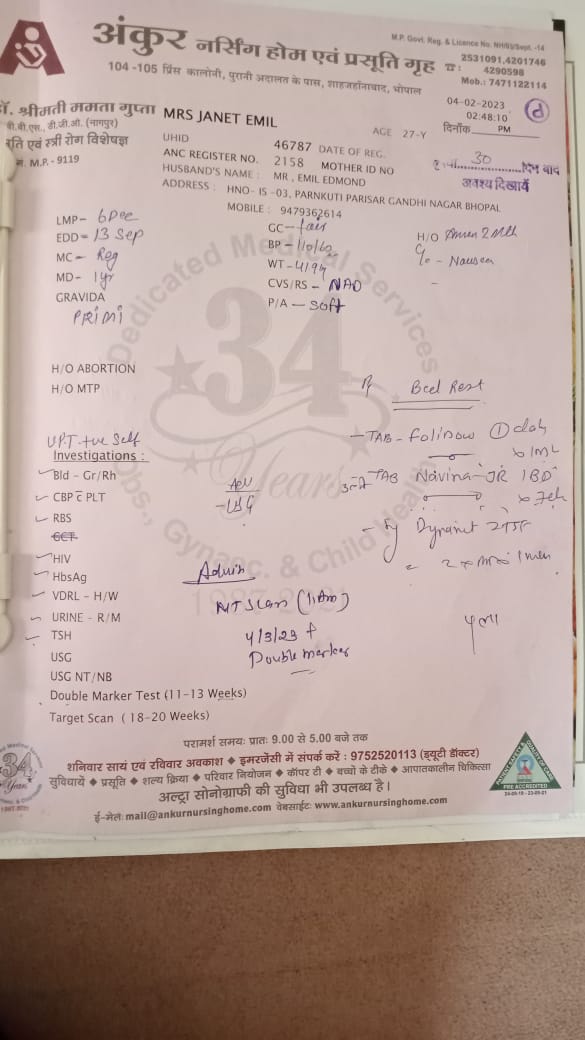 M.P. Govt. Reg. & Licence No. NH/93/Sept. -14
अंकुर नर्सिंग होम एवं प्रसूति गृह
☎: 2531091,4201746
4290598
Mob.: 7471122114
104 -105 प्रिंस कालोनी, पुरानी अदालत के पास, शाहजहांनाबाद, भोपाल
डॉ. श्रीमती ममता गुप्ता
बी.बी.एस., डी.जी.ओ. (नागपुर)
स्त्री रोग विशेषज्ञ
नं. M.P. - 9119
MRS JANET EMIL
AGE 27-Y
04-02-2023
02:48:10
दिनाँक PM
UHID 46787 DATE OF REG.
ANC REGISTER NO. 2158 MOTHER ID NO
HUSBAND'S NAME : MR , EMIL EDMOND
ADDRESS : HNO- IS -03, PARNKUTI PARISAR GANDHI NAGAR BHOPAL
MOBILE : 9479362614
30 दिन बाद
अवश्य दिखायें
LMP- 6 Dec
EDD- 13 Sep
MC- Reg
MD- 1 yr
GRAVIDA
PRIMI
GC- fair
BP- 110/60
WT-
CVS/RS - NAD
P/A - Soft
H/O
c/o - Nausea
H/O ABORTION
H/O MTP
UPT +ve Self
Investigations :
Bld - Gr/Rh
CBP c̄ PLT
RBS
GCT
HIV
HbsAg
VDRL - H/W
URINE - R/M
TSH
USG
USG NT/NB
Double Marker Test (11-13 Weeks)
Target Scan ( 18-20 Weeks)
Adv
- USG
Advin
NT Scan
4/3/23 +
Double marker
Rx Bed Rest
- TAB - Folinow
TAB Navina-JR 1 BD
परामर्श समयः प्रातः 9.00 से 5.00 बजे तक
शनिवार सायं एवं रविवार अवकाश ◆ इमरजेंसी में संपर्क करें : 9752520113 (ड्यूटी डॉक्टर)
सुविधायें ◆ प्रसूति ◆ शल्य क्रिया ◆ परिवार नियोजन ◆ कॉपर टी ◆ बच्चो के टीके ◆ आपातकालीन चिकित्सा
अल्ट्रा सोनोग्राफी की सुविधा भी उपलब्ध है।
ई-मेलः mail@ankurnursinghome.com वेबसाईटः www.ankurnursinghome.com
Dedicated Medical Services
34
Years
Obs., Gynaec. & Child Health
PRE ACCREDITED